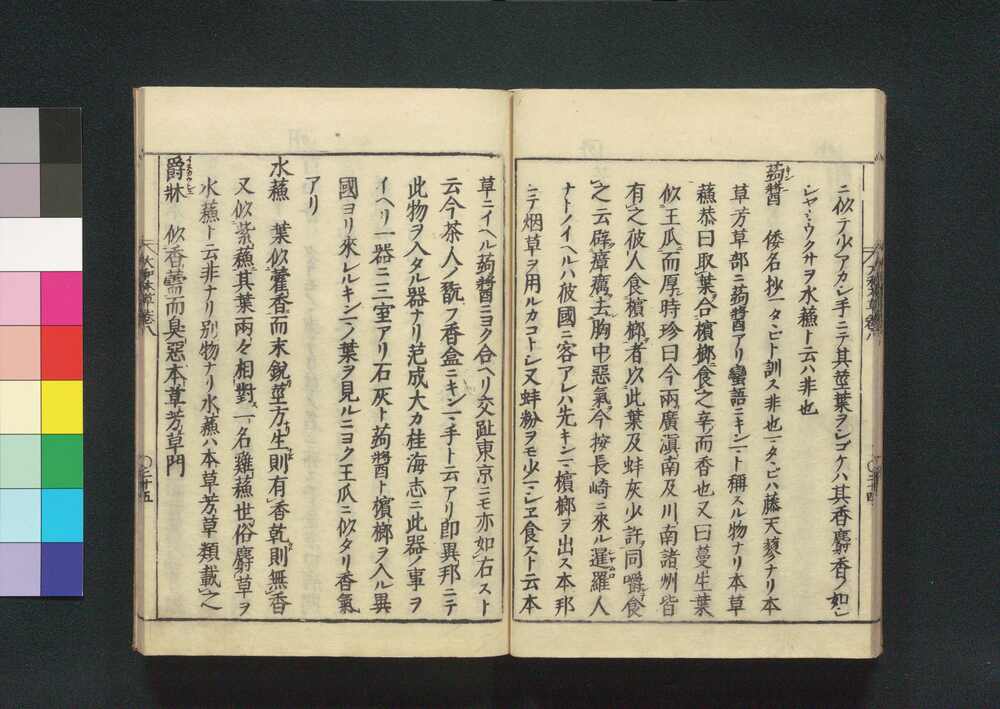 ニ似テ少アカシ手ニテ其莖葉ヲシゴケハ其香麝香ノ如シ
シヤカウクサヲ水蘓ト云ハ非也
蒟醬 倭名抄ニワタヽヒト訓ス非也ワタヽヒハ藤天蓼ナリ本
草芳草部ニ蒟醬アリ蠻語ニキンマト稱スル物ナリ本草
蘓恭曰取葉合檳榔食之辛而香也又曰蔓生葉
似王瓜而厚時珍曰今兩廣滇南及川南諸州皆
有之彼人食檳榔者以此葉及蚌灰少許同嚼食
之云辟瘴癘去胸中惡氣今按長崎ニ來ル暹羅人
ナトノイヘルハ彼國ニ客アレハ先キンマ檳榔ヲ出ス本邦
ニテ烟草ヲ用ルカコトシ又蚌粉ヲモ少シマシエ食スト云本
草ニイヘル蒟醬ニヨク合ヘリ交趾東京ニモ亦如右スト
云今茶人ノ翫フ香盒ニキンマ手ト云アリ即異邦ニテ
此物ヲ入タル器ナリ范成大カ桂海志ニ此器ノ事ヲ
イヘリ一器ニ三室アリ石灰ト蒟醬ト檳榔ヲ入ル異
國ヨリ來レルキンマノ葉ヲ見ルニヨク王瓜ニ似タリ香氣
アリ
水蘓 葉似藿香而末銳莖方生則有香乾則無香
又似紫蘓其葉兩々相對一名雞蘓世俗麝草ヲ
水蘓ト云非ナリ別物ナリ水蘓ハ本草芳草類載之
爵牀 似香薷而臭惡本草芳草門